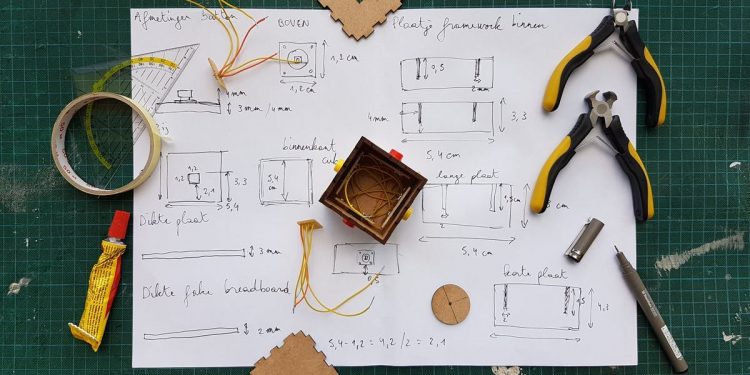 Afmetingen button
BOVEN
Plaatje framework binnen
1,3 cm
1,2 cm
4mm
3 mm / 4 mm
0,5
2mm
4mm
3,3
5,4 cm
binnenkant
cub
1,2
1,2
2,1
3,3
5,4
5,4
cm
lange plaat
0,5cm
2
3 cm
5,4 cm
Dikte plaat
3 mm
0,5
korte plaat
5
4,3
2
Dikte fake breadboard
2 mm
5,4-1,2 = 4,2 /2 = 2,1